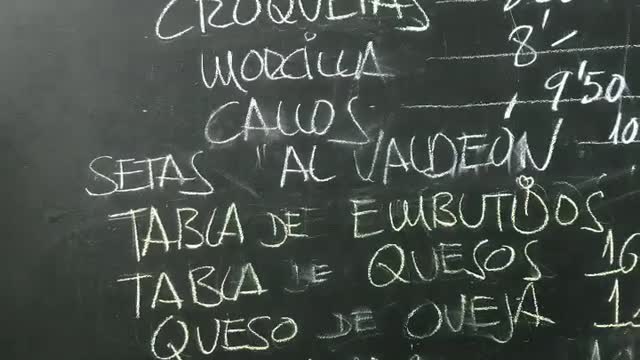 CROQUETAS
MORCILLA 8'-
CALLOS 9'50
SETAS "AL VALDEÓN 10
TABLA DE EMBUTIDOS
TABLA DE QUESOS 16
QUESO DE OVEJA